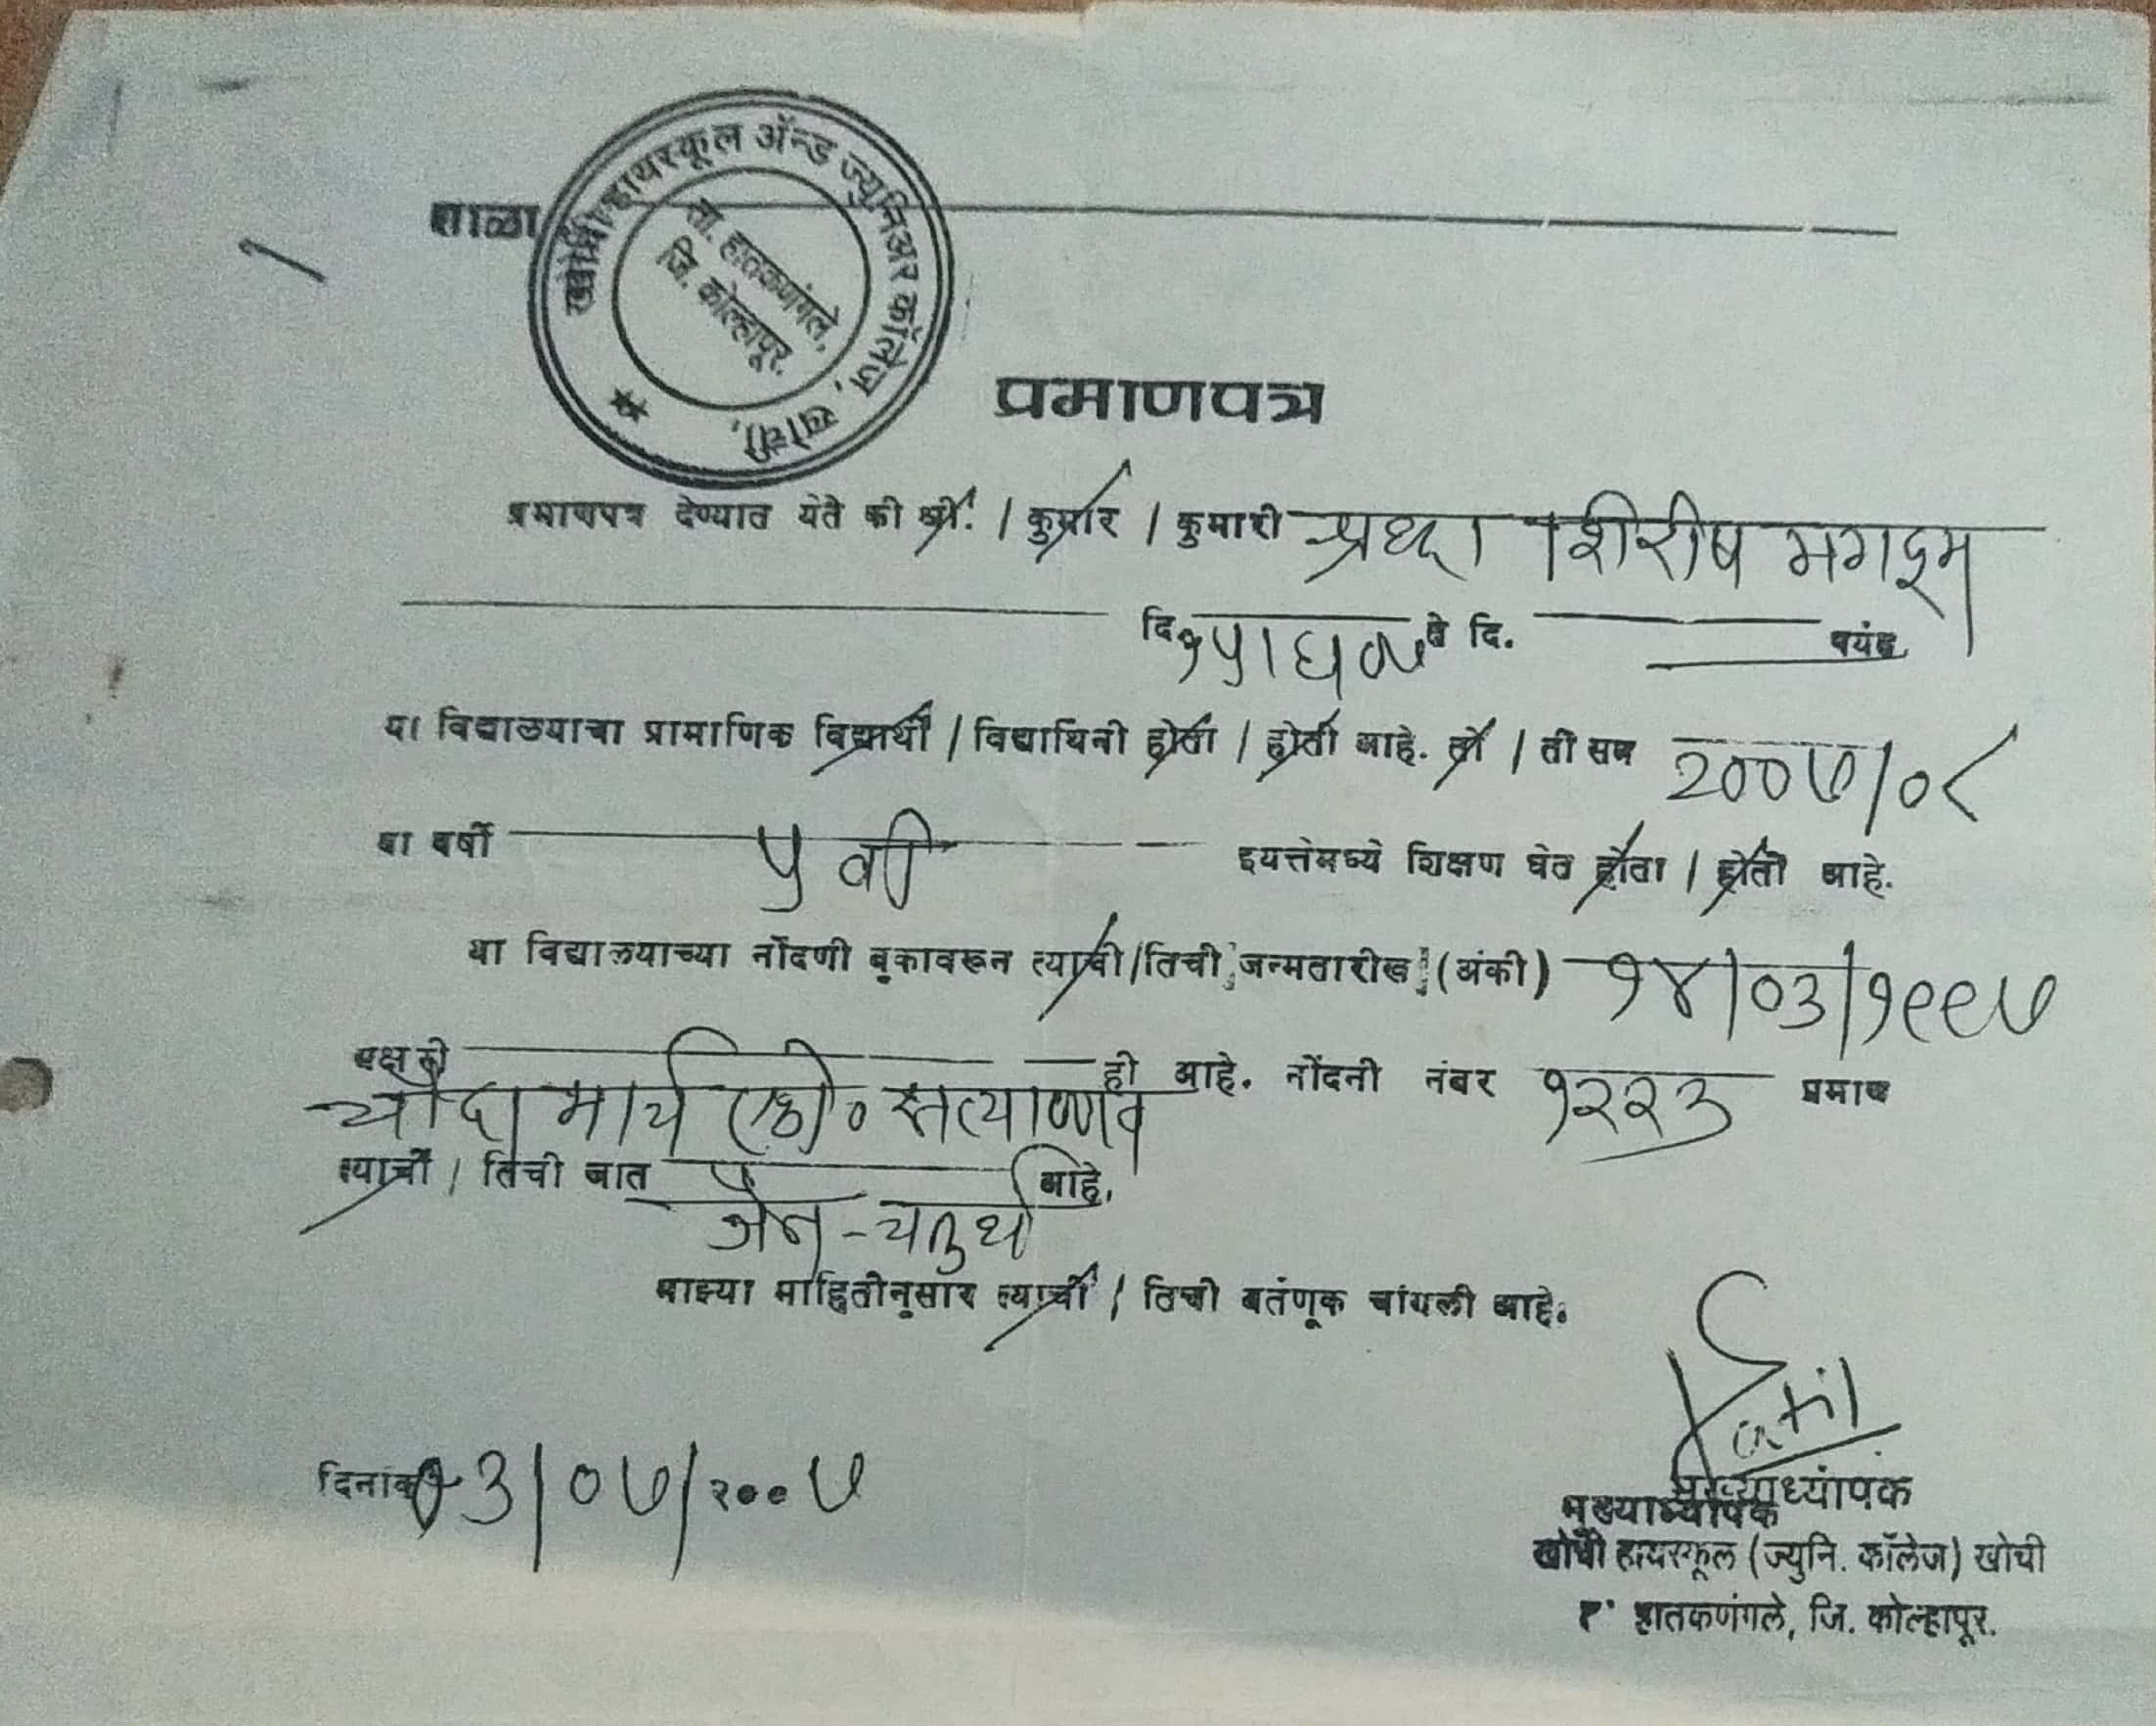 शाळा
खोची हायस्कूल ॲन्ड ज्युनिअर कॉलेज, खोची.
ता. हातकणंगले,
जि. कोल्हापूर.
प्रमाणपत्र
प्रमाणपत्र देण्यात येते की श्री. / कुमार / कुमारी श्रध्दा शिरीष मगदूम
दि. ते दि. पर्यंत
या विद्यालयाचा प्रामाणिक विद्यार्थी / विद्यार्थिनी होता / होती आहे. तो / ती सन २००७/०८
या वर्षी ५ वी इयत्तेमध्ये शिक्षण घेत होता / होती आहे.
या विद्यालयाच्या नोंदणी बुकावरून त्याची/तिची जन्मतारीख (अंकी) १४/०३/१९९७
अक्षरी चौदा मार्च एको० सत्याण्णव ही आहे. नोंदनी नंबर १२२३ प्रमाणे
त्याची / तिची जात जैन-चतुर्थ आहे.
माझ्या माहितीनुसार त्याची / तिची वर्तणूक चांगली आहे.
Patil
दिनांक ०३/०७/२००७
मुख्याध्यापक
मुख्याध्यापक
खोची हायस्कूल (ज्युनि. कॉलेज) खोची
हातकणंगले, जि. कोल्हापूर.